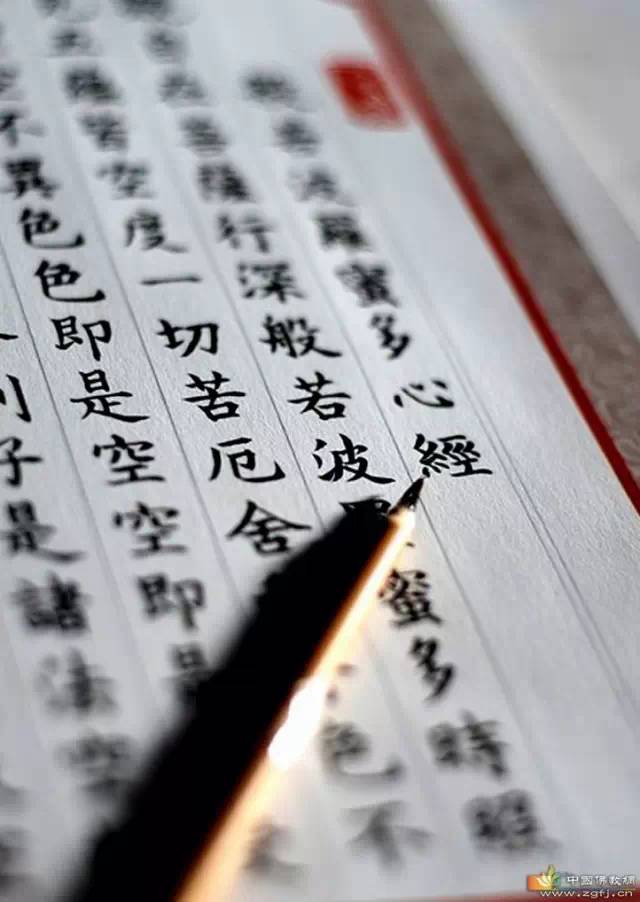 般若波羅蜜多心經
自在菩薩行深般若波羅蜜多時照
五蘊皆空度一切苦厄舍色不
空不異色色即是空空即是
利子是諸法空
中国佛教網
www.zgfj.cn